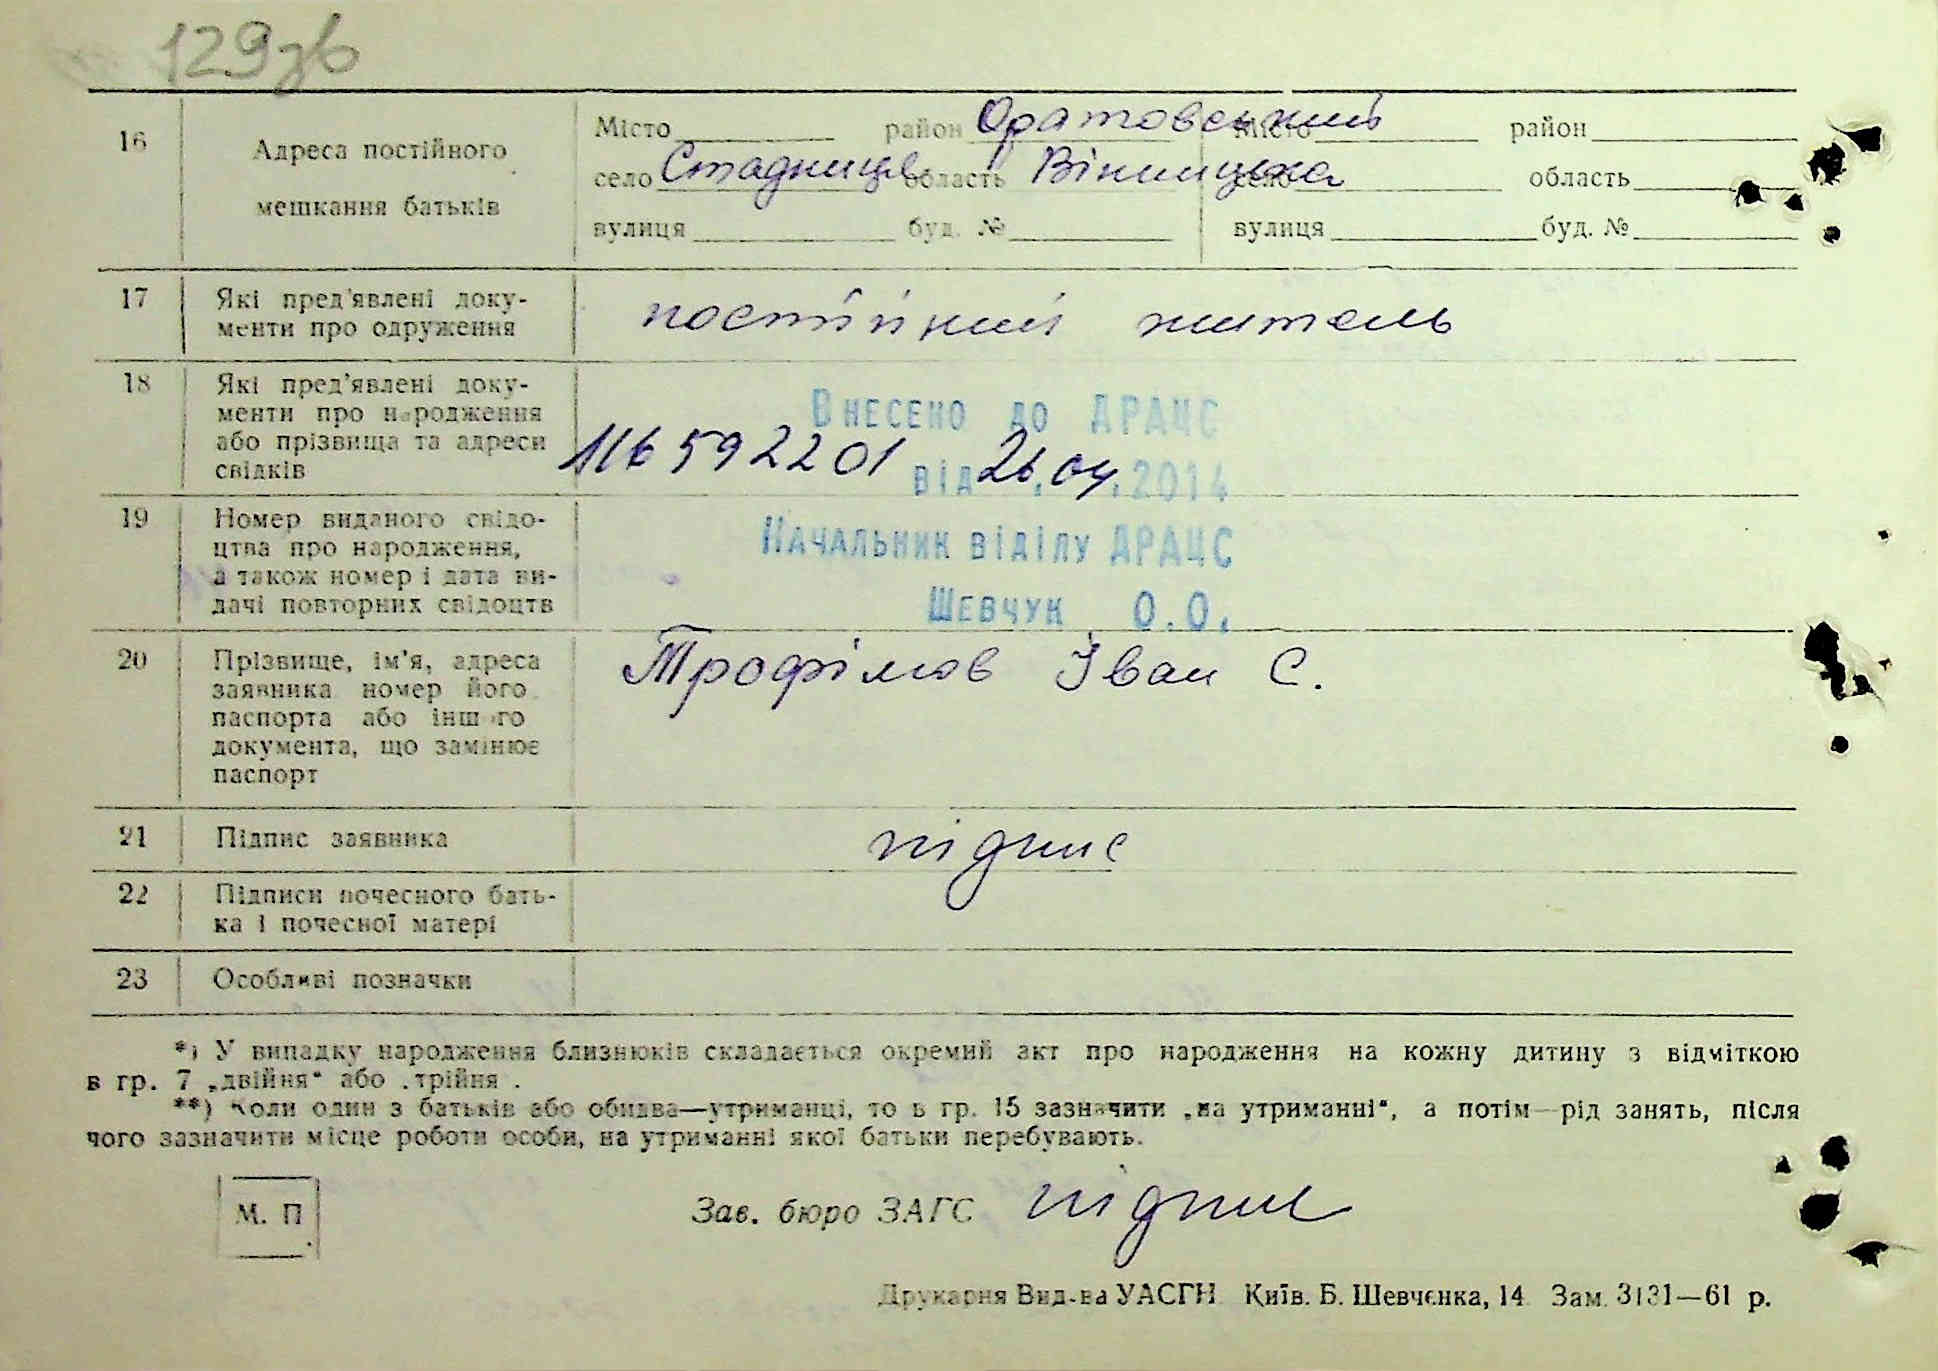 129зв
16 Адреса постійного мешкання батьків
Місто район Оратовський Місто район
село Стадниця область Вінницька село область
вулиця буд. № вулиця буд. №
17 Які пред'явлені доку-
менти про одруження
постійний житель
18 Які пред'явлені доку-
менти про народження
або прізвища та адреси
свідків
Внесено до ДРАЦС
116592201 від 26.04.2014
19 Номер виданого свідо-
цтва про народження,
а також номер і дата ви-
дачі повторних свідоцтв
Начальник відділу ДРАЦС
Шевчук О.О.
20 Прізвище, ім'я, адреса
заявника номер його
паспорта або іншого
документа, що замінює
паспорт
Трофімов Іван С.
21 Підпис заявника підпис
22 Підписи почесного бать-
ка і почесної матері
23 Особливі позначки
*) У випадку народження близнюків складається окремий акт про народження на кожну дитину з відміткою
в гр. 7 „двійня“ або „трійня“.
**) Коли один з батьків або обидва—утриманці, то в гр. 15 зазначити „на утриманні“, а потім—рід занять, після
чого зазначити місце роботи особи, на утриманні якої батьки перебувають.
М. П Зав. бюро ЗАГС підпис
Друкарня Вид-ва УАСГН Київ. Б. Шевченка, 14 Зам. 3131—61 р.